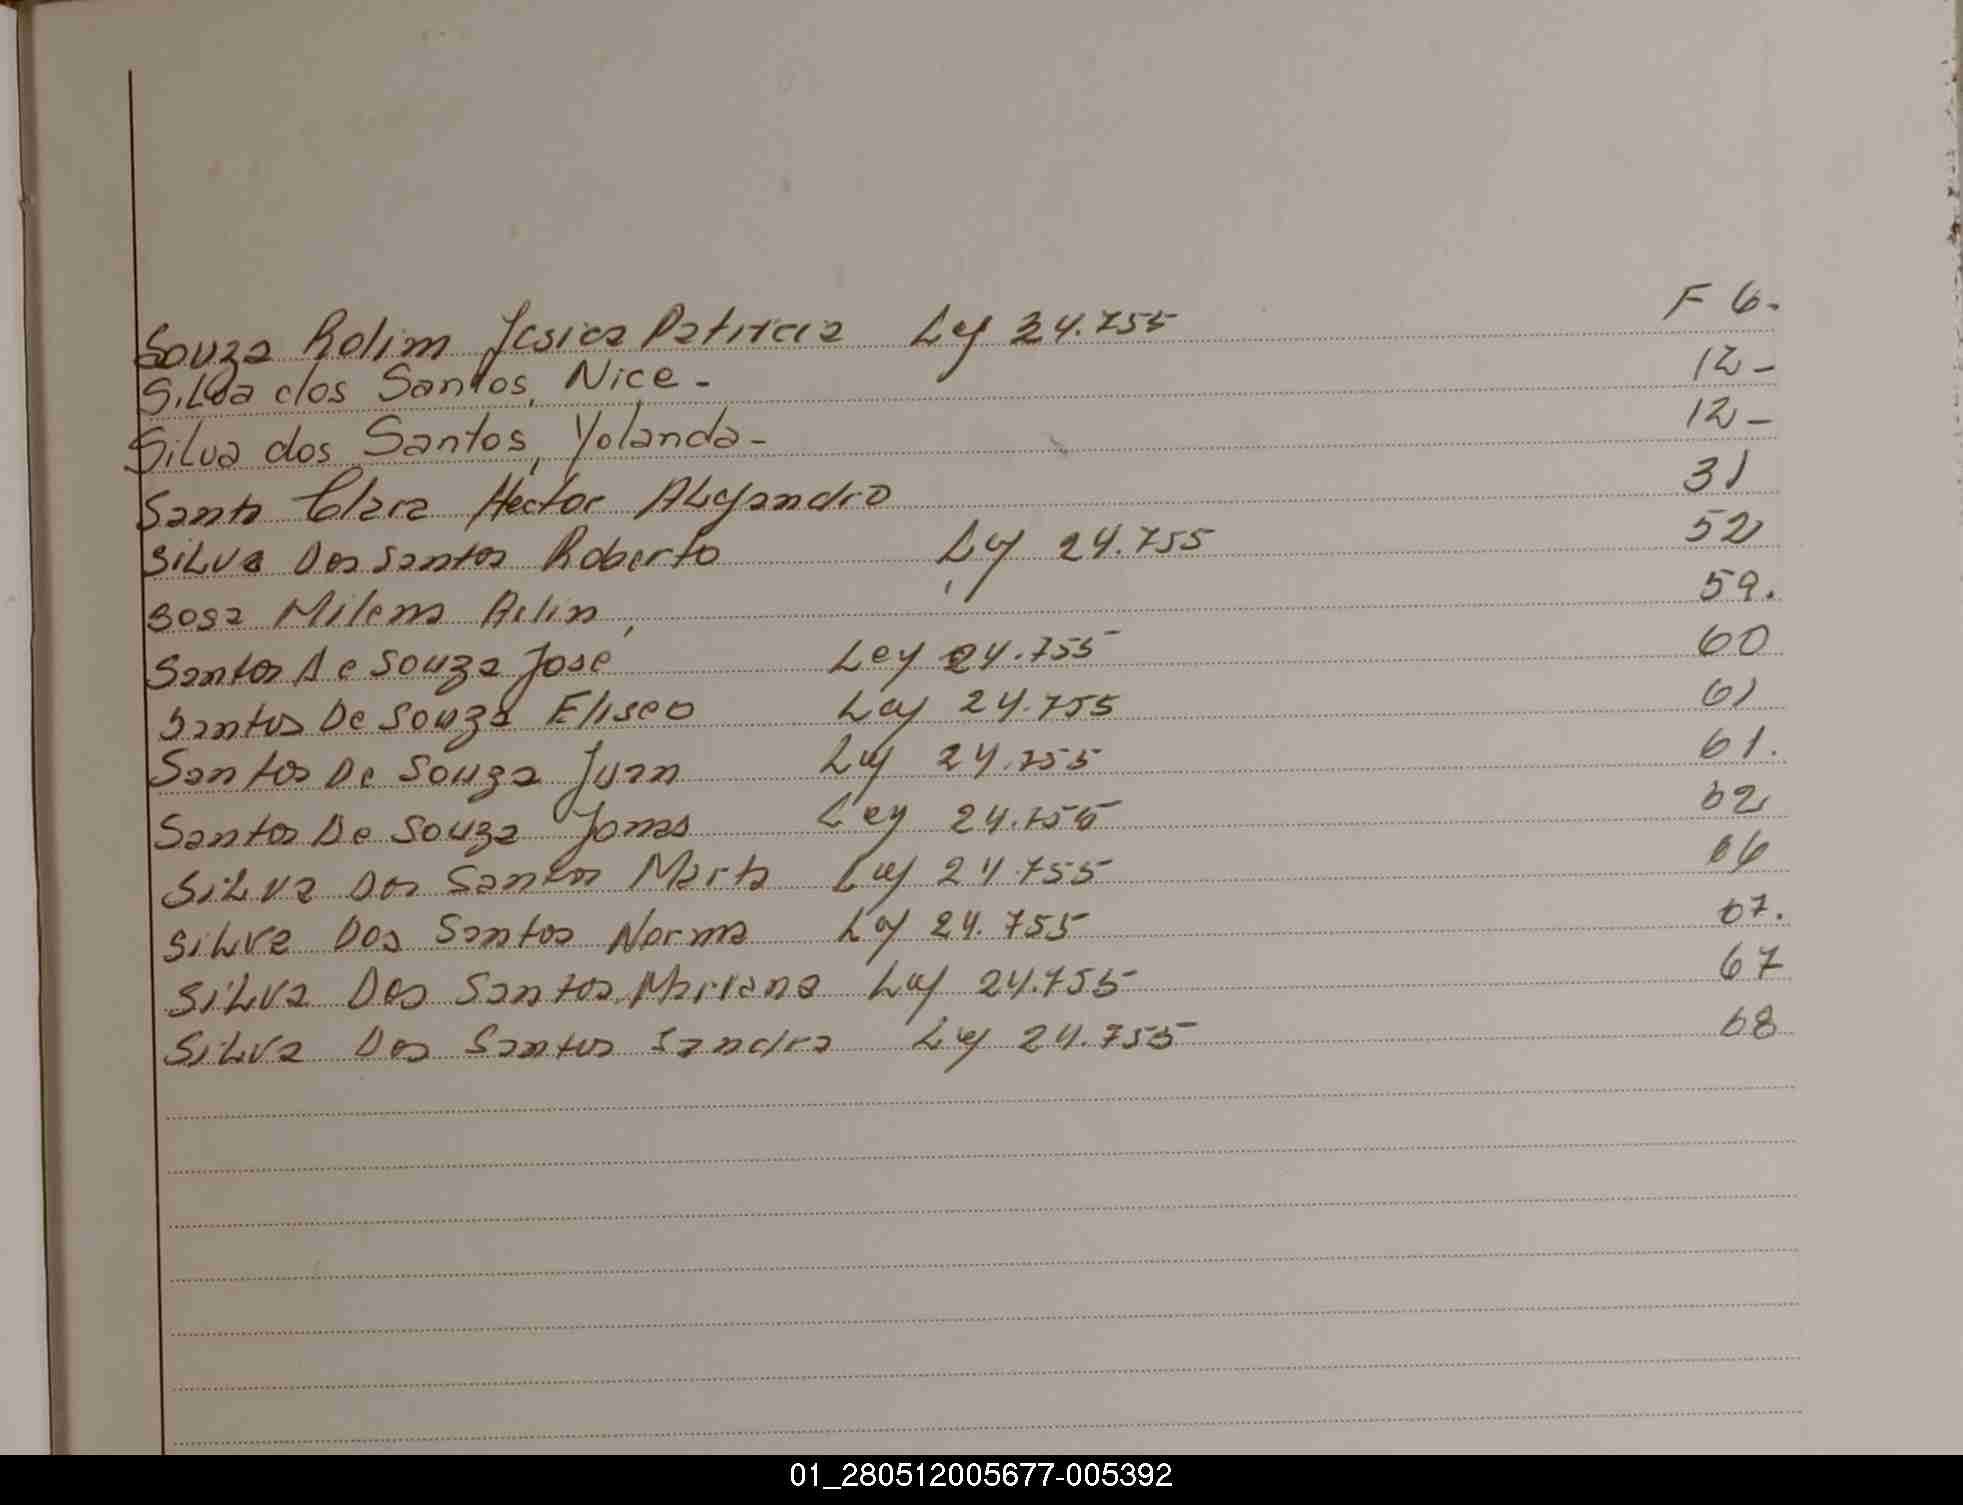 Souza Rolim Jesica Patricia Ley 24.755 F 6.
Silva dos Santos, Nice - 12 -
Silva dos Santos, Yolanda - 12 -
Santa Clara Hector Alejandro 31
Silva Dos Santos Roberto Ley 24.755 52
Sosa Milena Ailin, 59.
Santos De Souza José Ley 24.755 60
Santos De Souza Eliseo Ley 24.755 61
Santos De Souza Juan Ley 24.755 61.
Santos De Souza Jonas Ley 24.755 62
Silva Dos Santos Marta Ley 24.755 66
Silva Dos Santos Norma Ley 24.755 67.
Silva Dos Santos Mariana Ley 24.755 67
Silva Dos Santos Sandra Ley 24.755 68
01_280512005677-005392